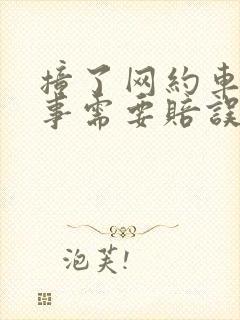 撞了网約車
事需要賠誤
泡芙!